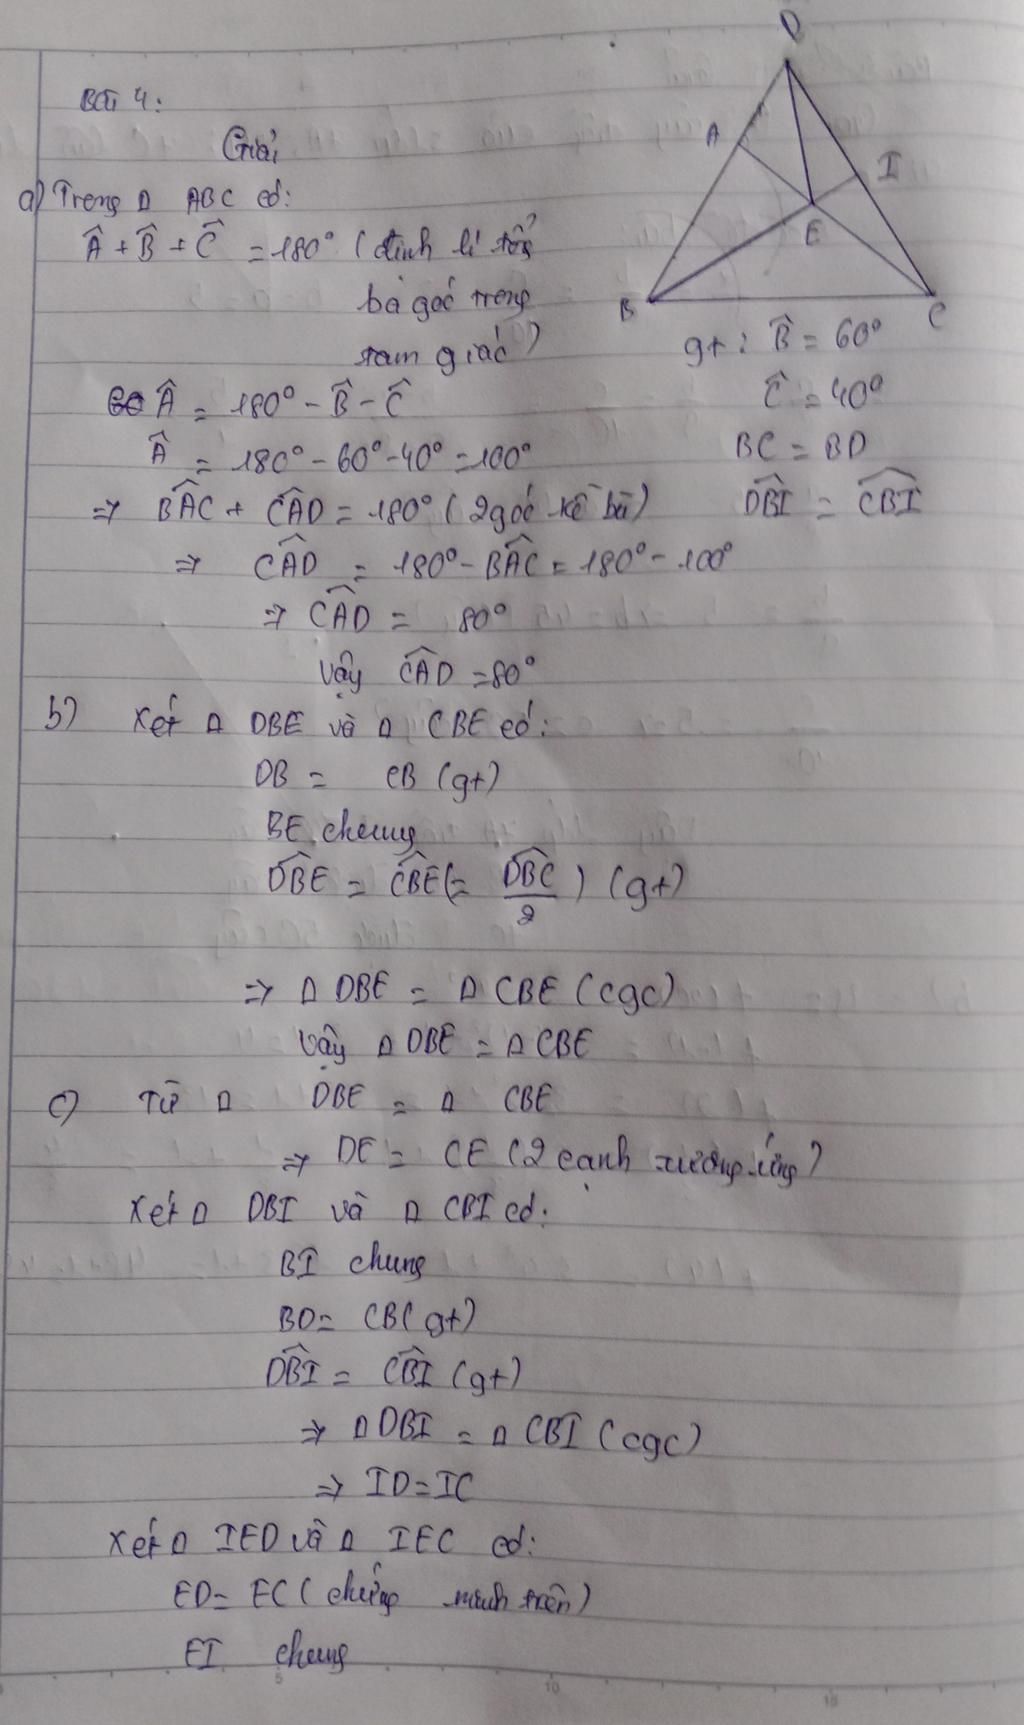 Bài 4:
Giải
a) Trong Δ ABC có:
Â + B̂ + Ĉ = 180° (định lí tổng
ba góc trong
tam giác)
Â = 180° - B̂ - Ĉ
Â = 180° - 60° - 40° = 100°
=> BÂC + CÂD = 180° (2 góc kề bù)
=> CÂD = 180° - BÂC = 180° - 100°
=> CÂD = 80°
Vậy CÂD = 80°
D
A
I
E
B
C
gt: B̂ = 60°
Ĉ = 40°
BC = BD
DB̂I = CB̂I
b) Xét Δ DBE và Δ CBE có:
DB = CB (gt)
BE chung
DB̂E = CB̂E (= DB̂C / 2) (gt)
=> Δ DBE = Δ CBE (cgc)
Vậy Δ DBE = Δ CBE
c) Từ Δ DBE = Δ CBE
=> DE = CE (2 cạnh tương ứng)
Xét Δ DBI và Δ CBI có:
BI chung
BD = CB (gt)
DB̂I = CB̂I (gt)
=> Δ DBI = Δ CBI (cgc)
=> ID = IC
Xét Δ IED và Δ IEC có:
ED = EC (chứng minh trên)
EI chung
5
10
15